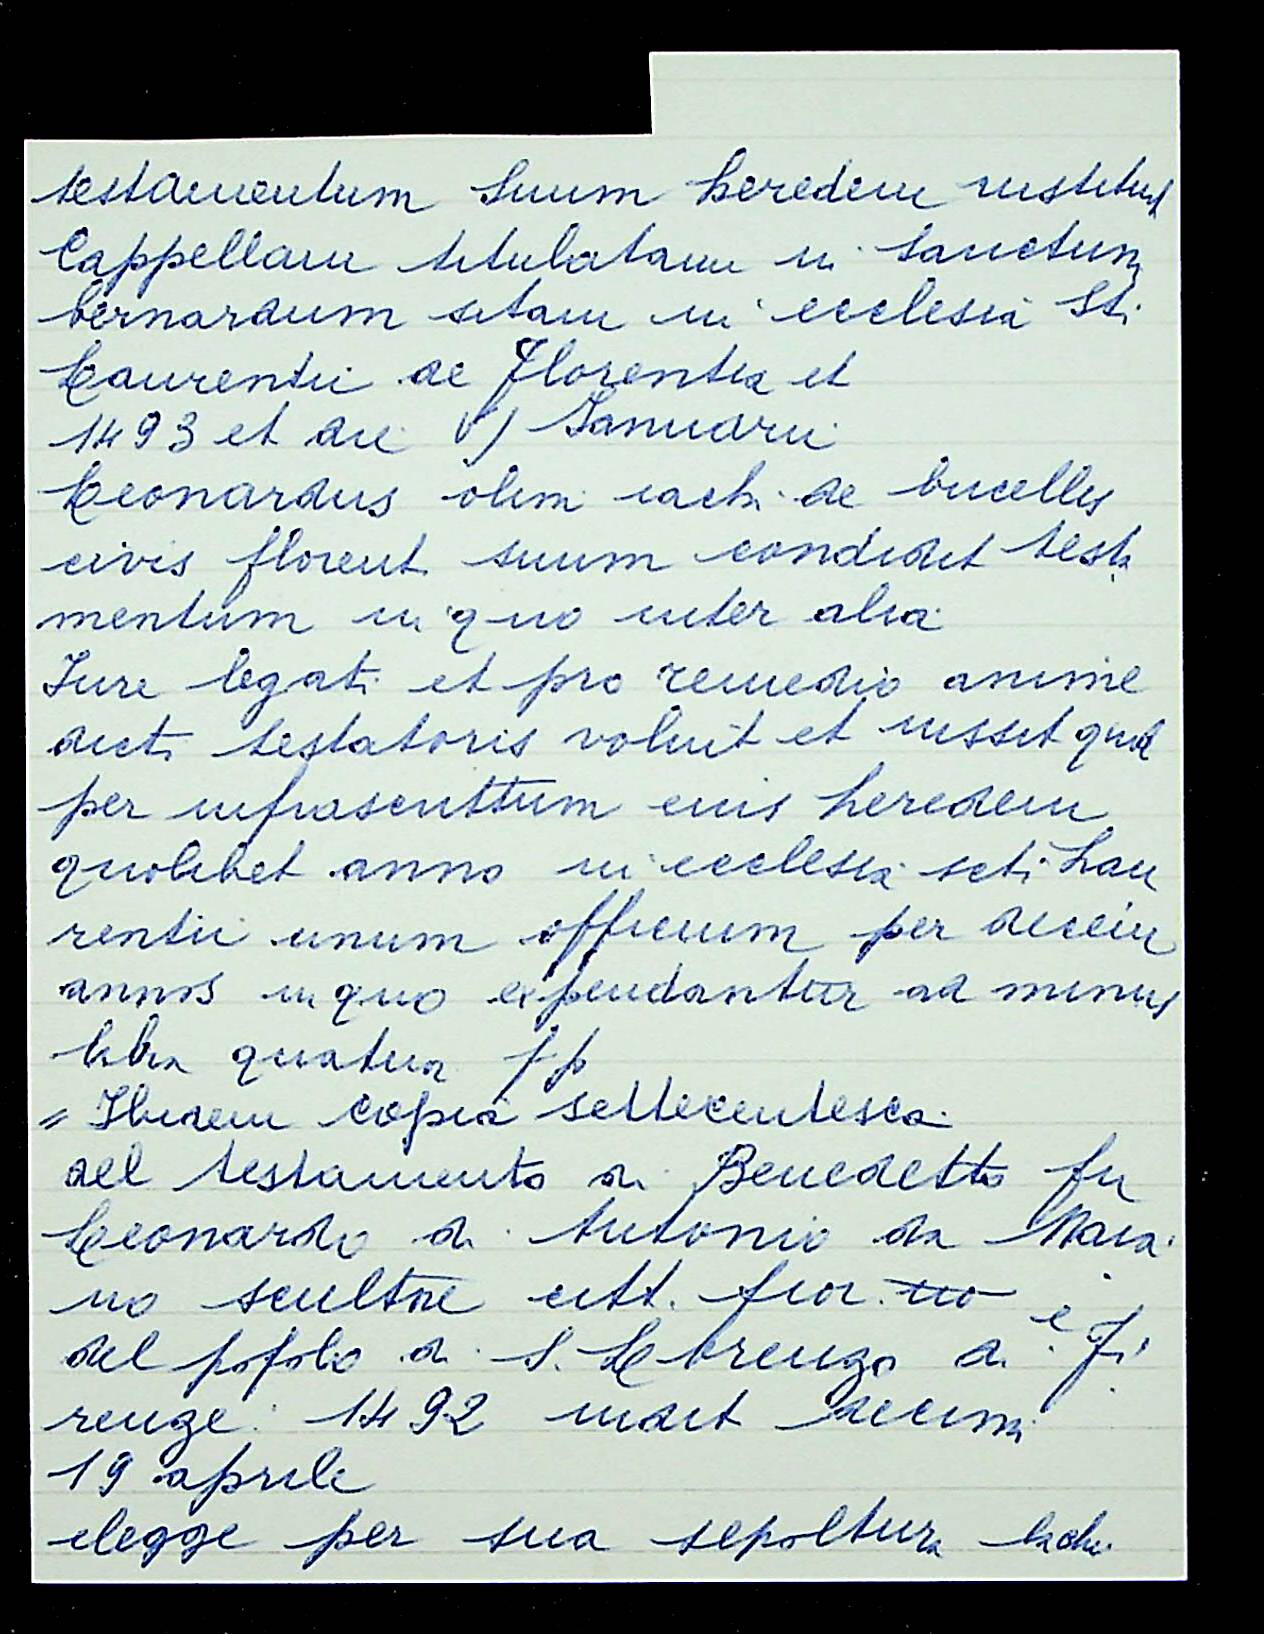 testamentum suum heredem instituit
Cappellam titulatam in sanctum
bernardum sitam in ecclesia Sti
Laurentii de Florentia et
1493 et die VJ Januarii
Leonardus olim iachi de bucellis
civis florent. suum condidit testa
mentum in quo inter alia
Iure legati et pro remedio anime
dicti testatoris voluit et iussit quod
per infrascrittum eius heredem
quolibet anno in ecclesia scti Lau
rentii unum officium per decem
annos in quo expendantur ad minus
libra quatuor fp
= Ibidem copia settecentesca
del testamento di Benedetto fu
Leonardo di Antonio da Maia
no scultore citt. fior. no
del popolo di S. Lorenzo di Fi
renze 1492 indit decim
19 aprile
elegge per sua sepoltura